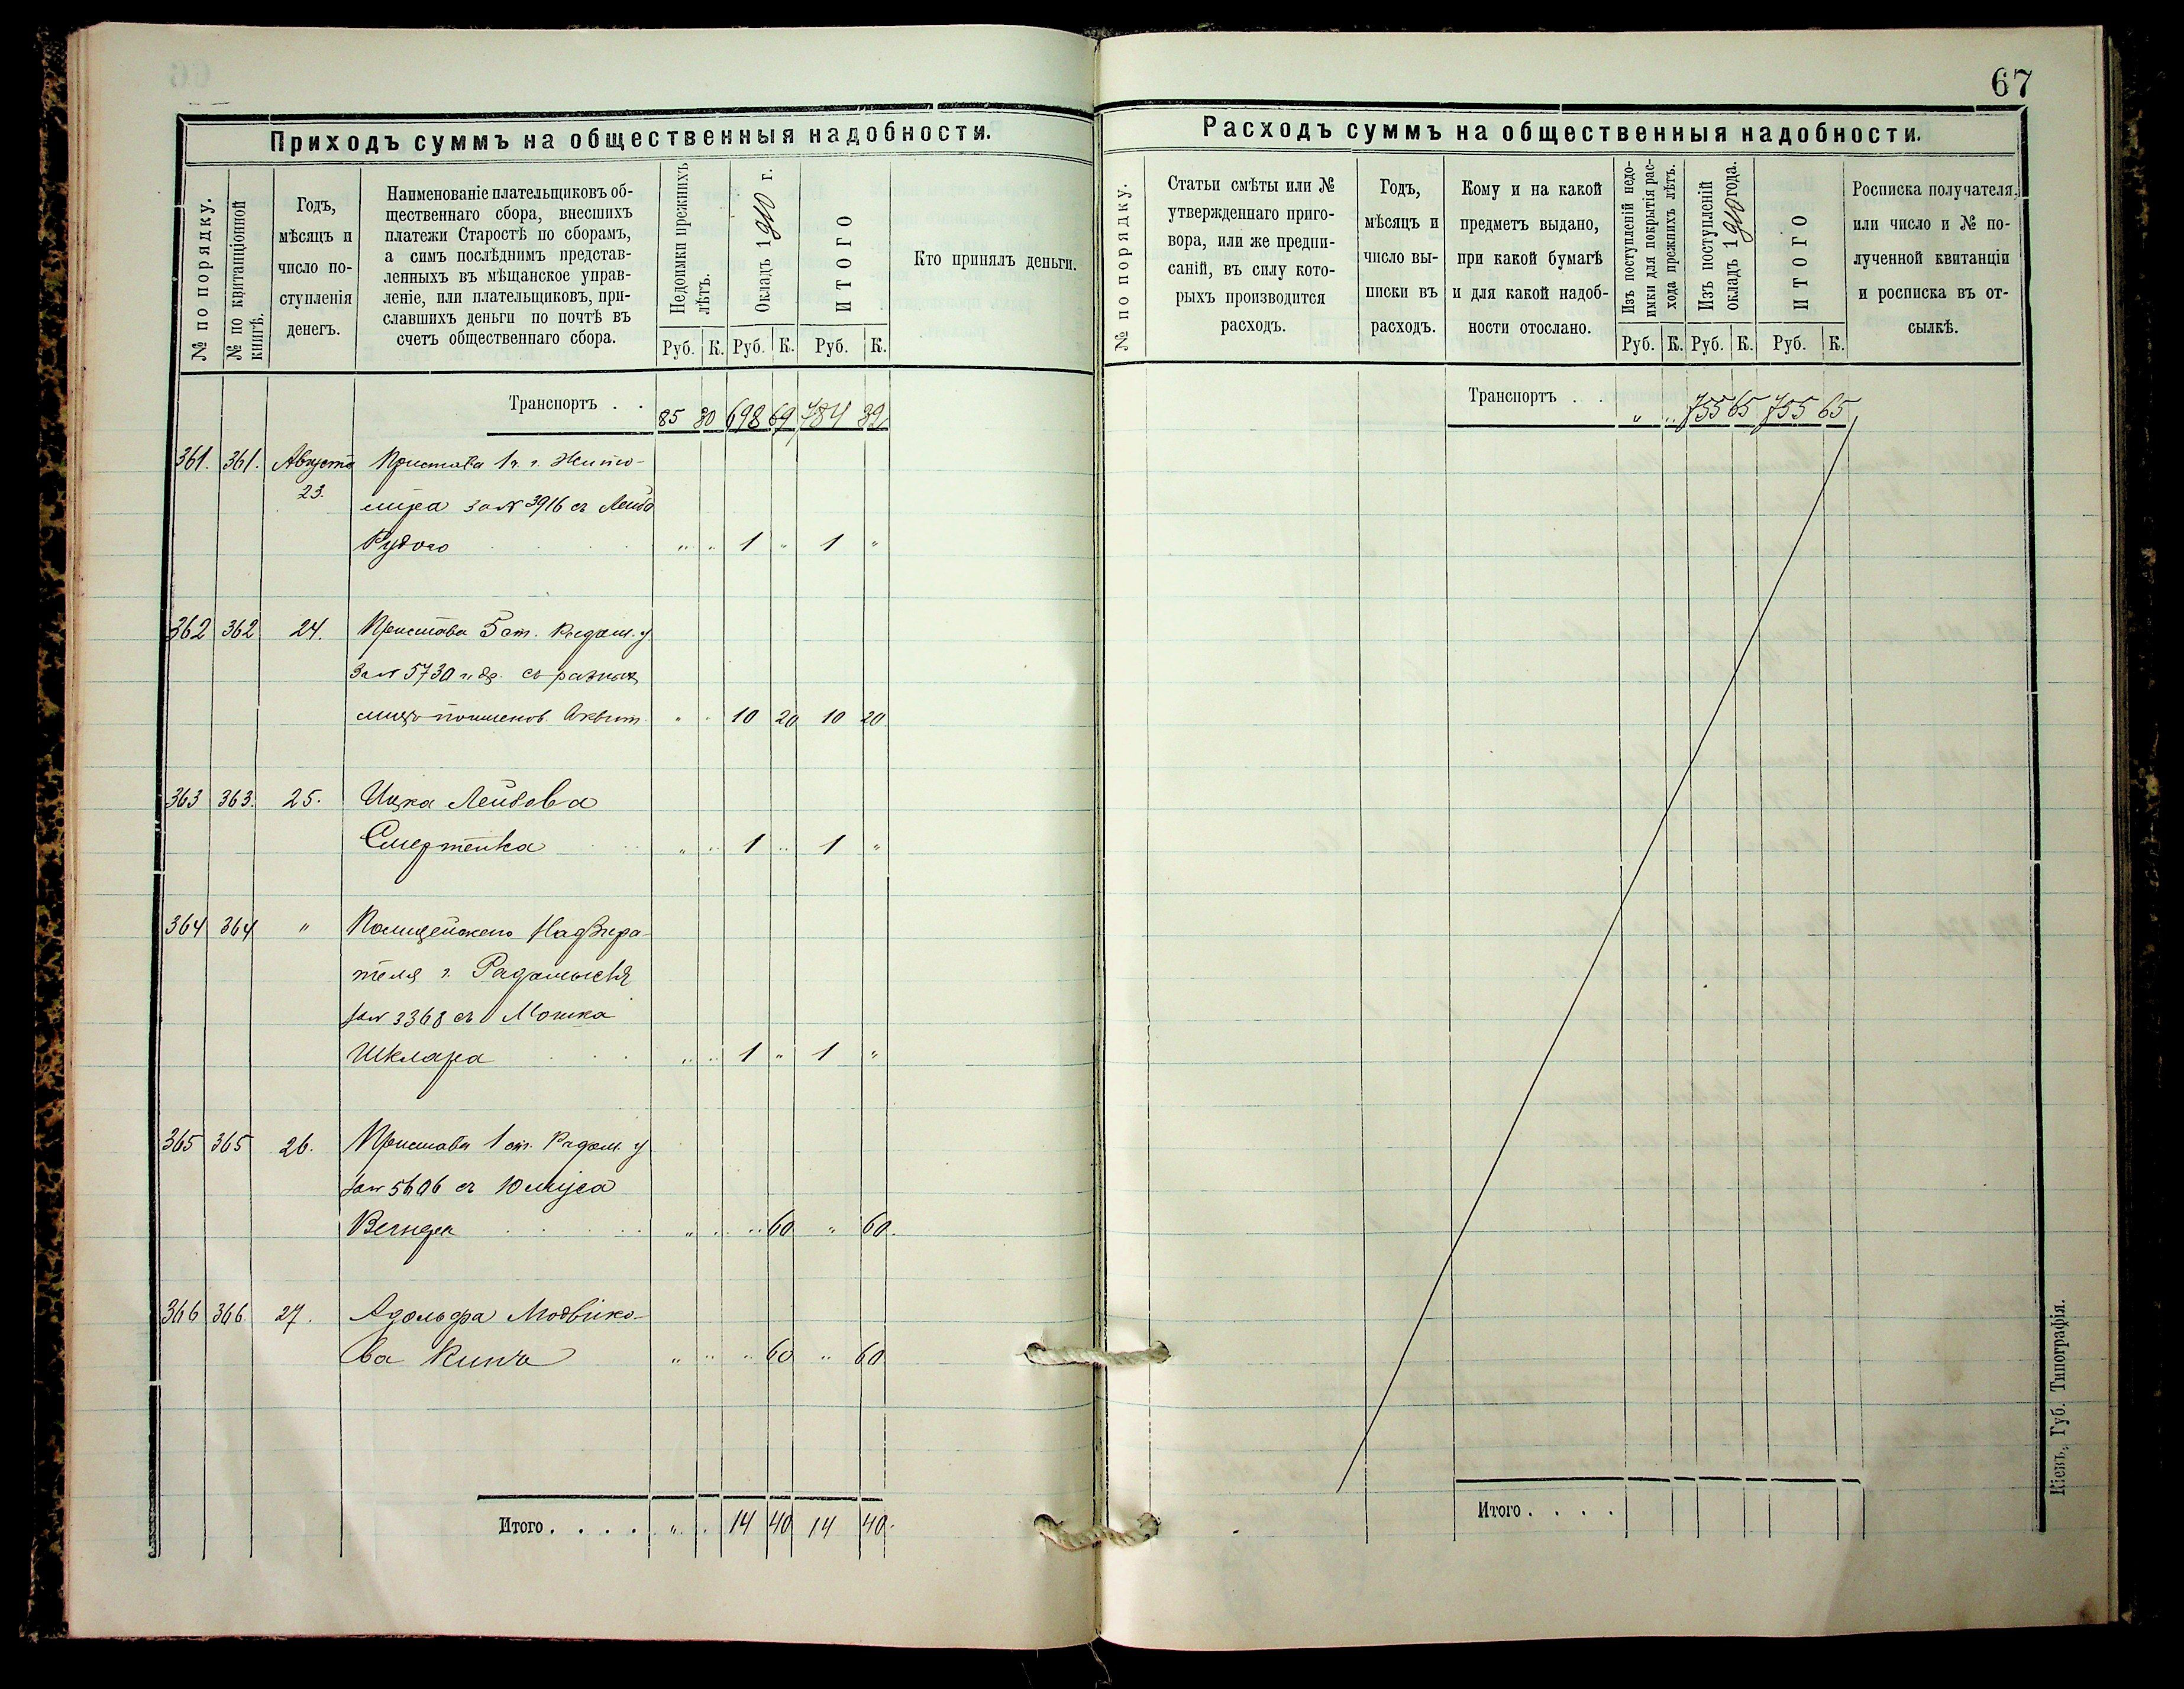 67
Приходъ суммъ на общественныя надобности.
№ по порядку.
№ по квитанціонной книгѣ.
Годъ,
мѣсяцъ и
число по-
ступленія
денегъ.
Наименованіе плательщиковъ об-
щественнаго сбора, внесшихъ
платежи Старостѣ по сборамъ,
а симъ послѣднимъ представ-
ленныхъ въ мѣщанское управ-
леніе, или плательщиковъ, при-
славшихъ деньги по почтѣ въ
счетъ общественнаго сбора.
Недоимки прежнихъ
лѣтъ.
Окладъ 1910 г.
ИТОГО
Руб. К. Руб. К. Руб. К.
Кто принялъ деньги.
Транспортъ . . 85 80 698 69 784 39
361. 361. Августа Пристава 1 ч. г. Жито-
23. мира за № 3916 съ Лейба
Рудого " " 1 " 1 "
362 362 24. Пристава 5 ст. Радом. у
за № 5730 и др. съ разныхъ
лицъ поименов. въ квит. " " 10 20 10 20
363 363. 25. Ицка Лейбова
" " 1 " 1 "
364 364 " Полицейскаго Надзира-
теля г. Радомысля
за № 3368 съ Мошка
Шкляра " " 1 " 1 "
365 365 26. Пристава 1 ст. Радом. у
за № 5606 съ
" " " 60 " 60.
366 366. 27. Адольфа
ва " " " 60 " 60
Итого. . . . " " 14 40 14 40.
Расходъ суммъ на общественныя надобности.
№ по порядку.
Статьи смѣты или №
утвержденнаго приго-
вора, или же предпи-
саній, въ силу кото-
рыхъ производится
расходъ.
Годъ,
мѣсяцъ и
число вы-
писки въ
расходъ.
Кому и на какой
предметъ выдано,
при какой бумагѣ
и для какой надоб-
ности отослано.
Изъ поступленій недо-
имки для покрытія рас-
хода прежнихъ лѣтъ.
Изъ поступленій
окладъ 1910 года.
ИТОГО
Руб. К. Руб. К. Руб. К.
Росписка получателя,
или число и № по-
лученной квитанціи
и росписка въ от-
сылкѣ.
Транспортъ . . " " 755 65 755 65
Итого . . . .
Кіевъ, Губ. Типографія.